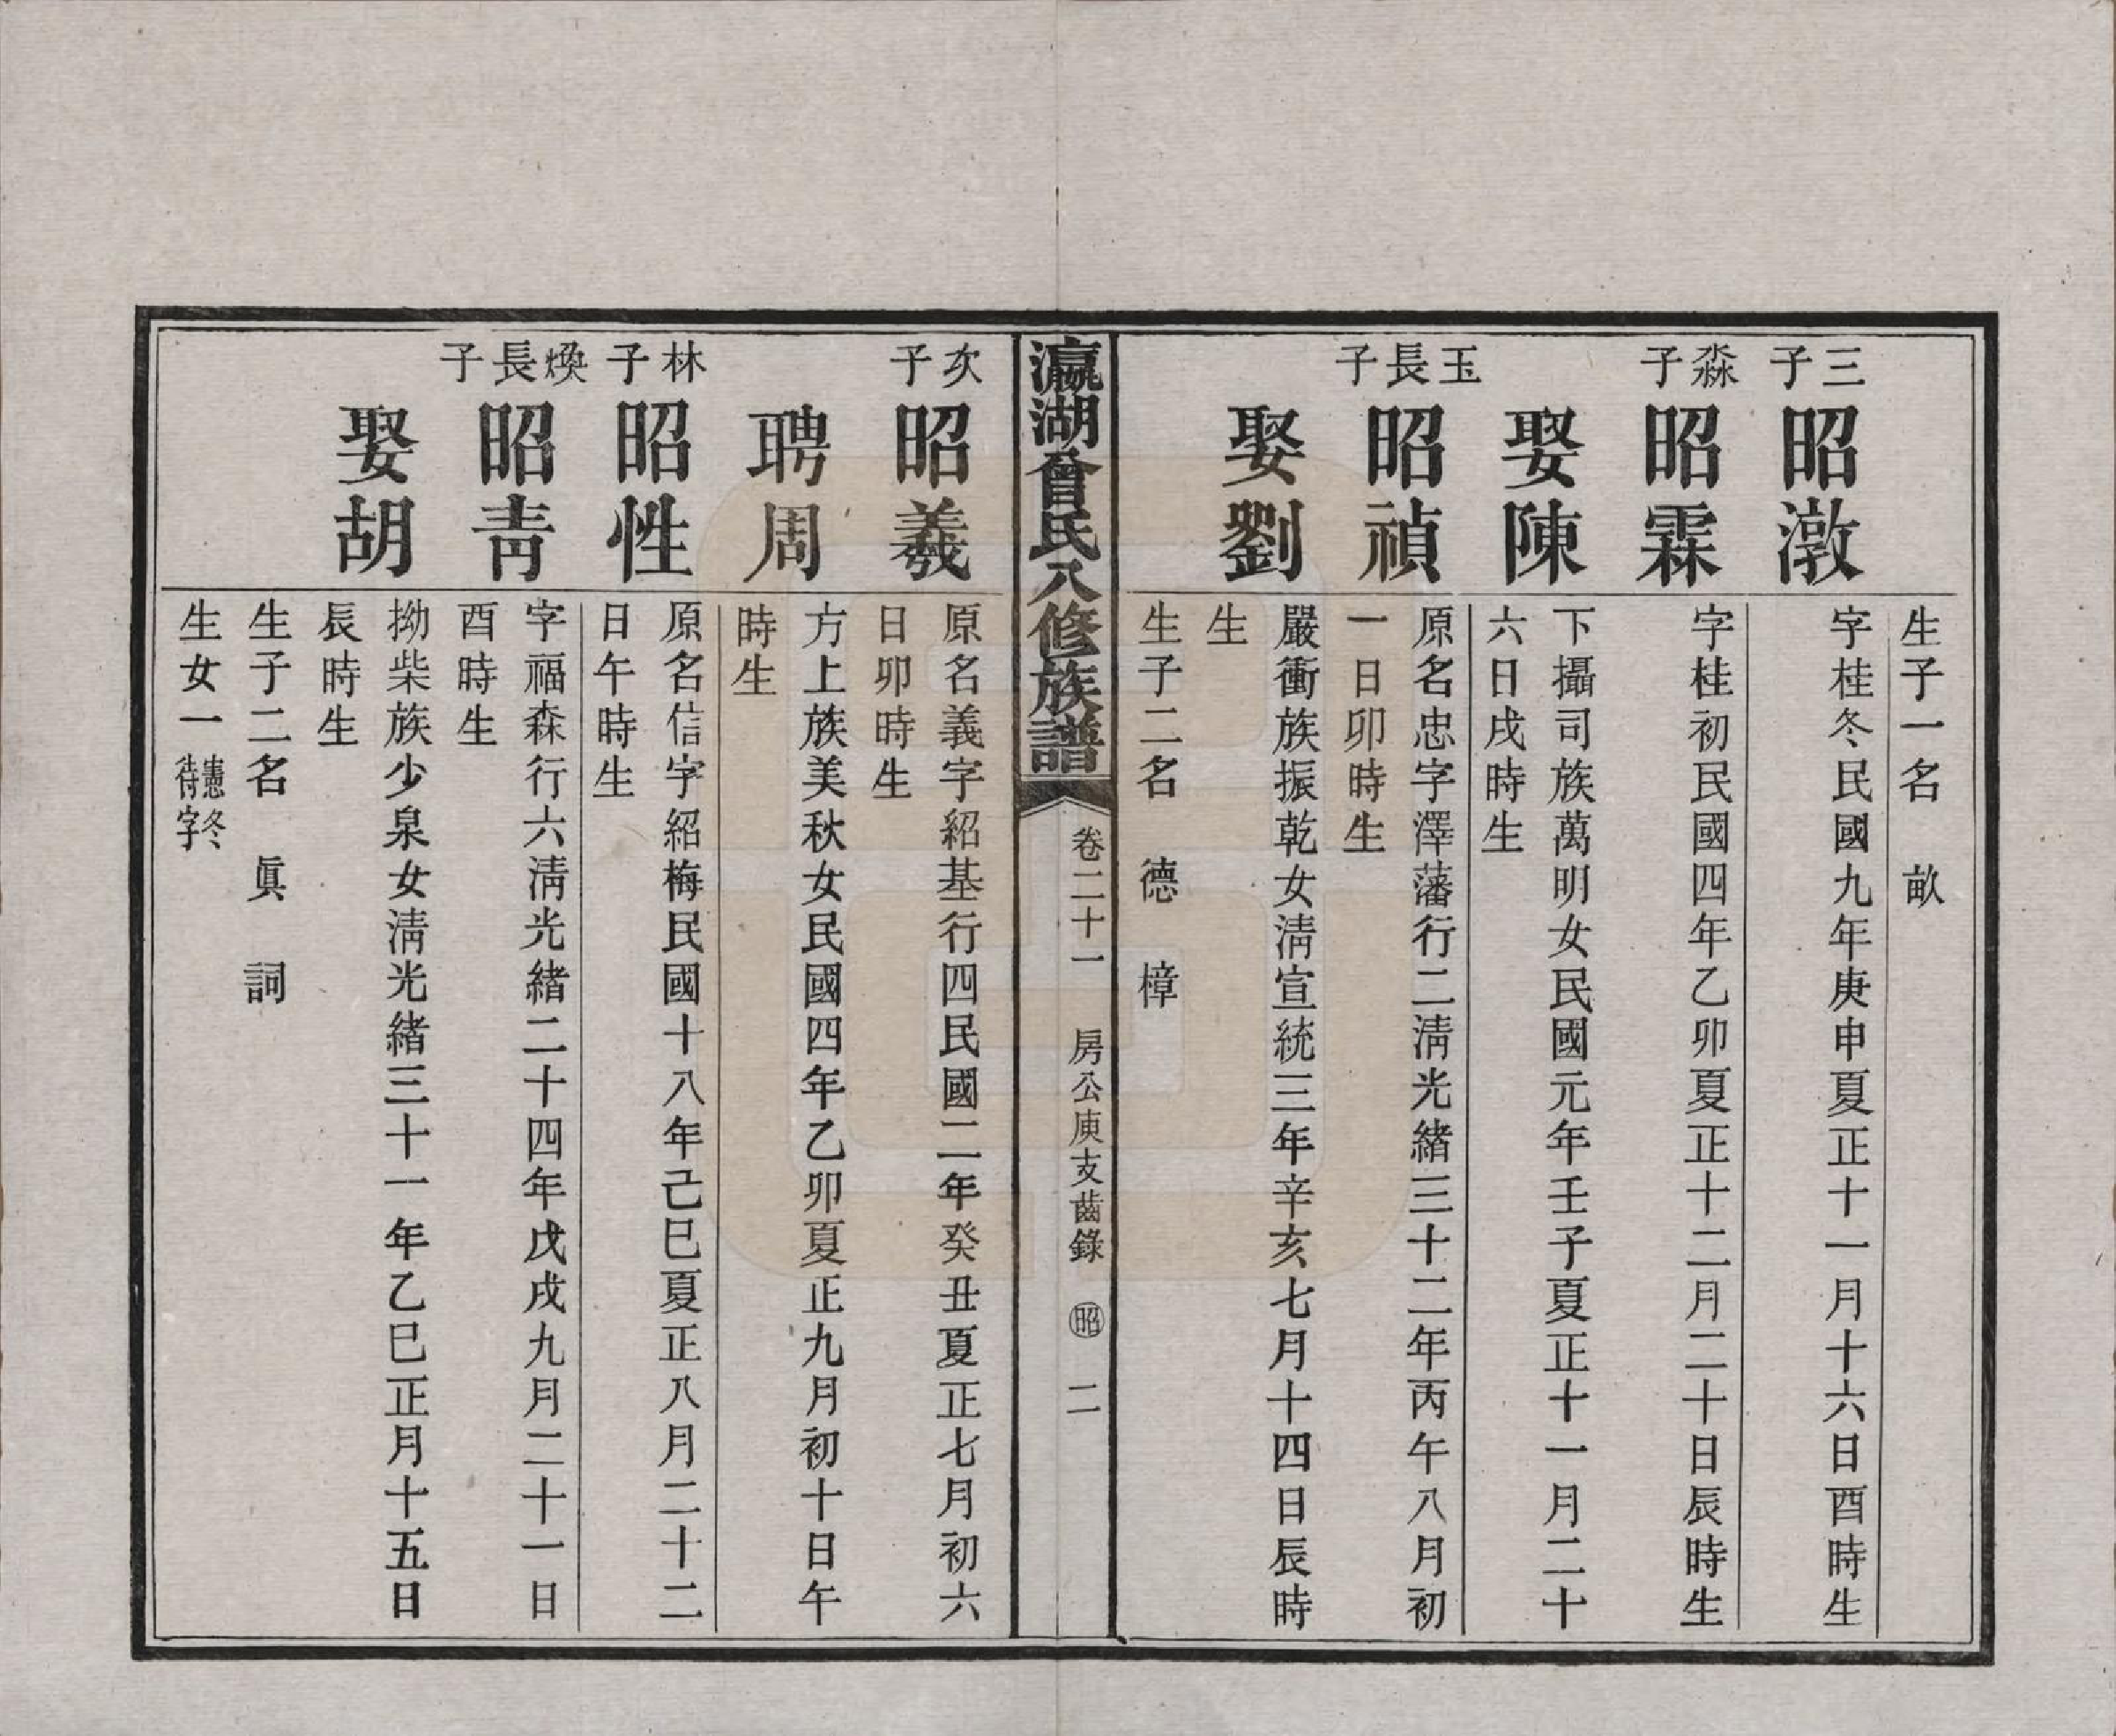 生子一名 畝
三子
昭潡
字桂冬民國九年庚申夏正十一月十六日酉時生
淼子
昭霖
字桂初民國四年乙卯夏正十二月二十日辰時生
娶陳
下攝司族萬明女民國元年壬子夏正十一月二十
六日戌時生
玉長子
昭禎
原名忠字澤藩行二淸光緒三十二年丙午八月初
一日卯時生
娶劉
嚴衝族振乾女淸宣統三年辛亥七月十四日辰時
生
生子二名 德 樟
瀛湖曾氏八修族譜
卷二十一 房公庚支齒錄 昭 二
次子
昭羲
原名義字紹基行四民國二年癸丑夏正七月初六
日卯時生
聘周
方上族美秋女民國四年乙卯夏正九月初十日午
時生
林子
昭性
原名信字紹梅民國十八年己巳夏正八月二十二
日午時生
煥長子
昭靑
字福森行六淸光緒二十四年戊戌九月二十一日
酉時生
娶胡
拗柴族少泉女淸光緒三十一年乙巳正月十五日
辰時生
生子二名 眞 詞
生女一 憲冬
待字